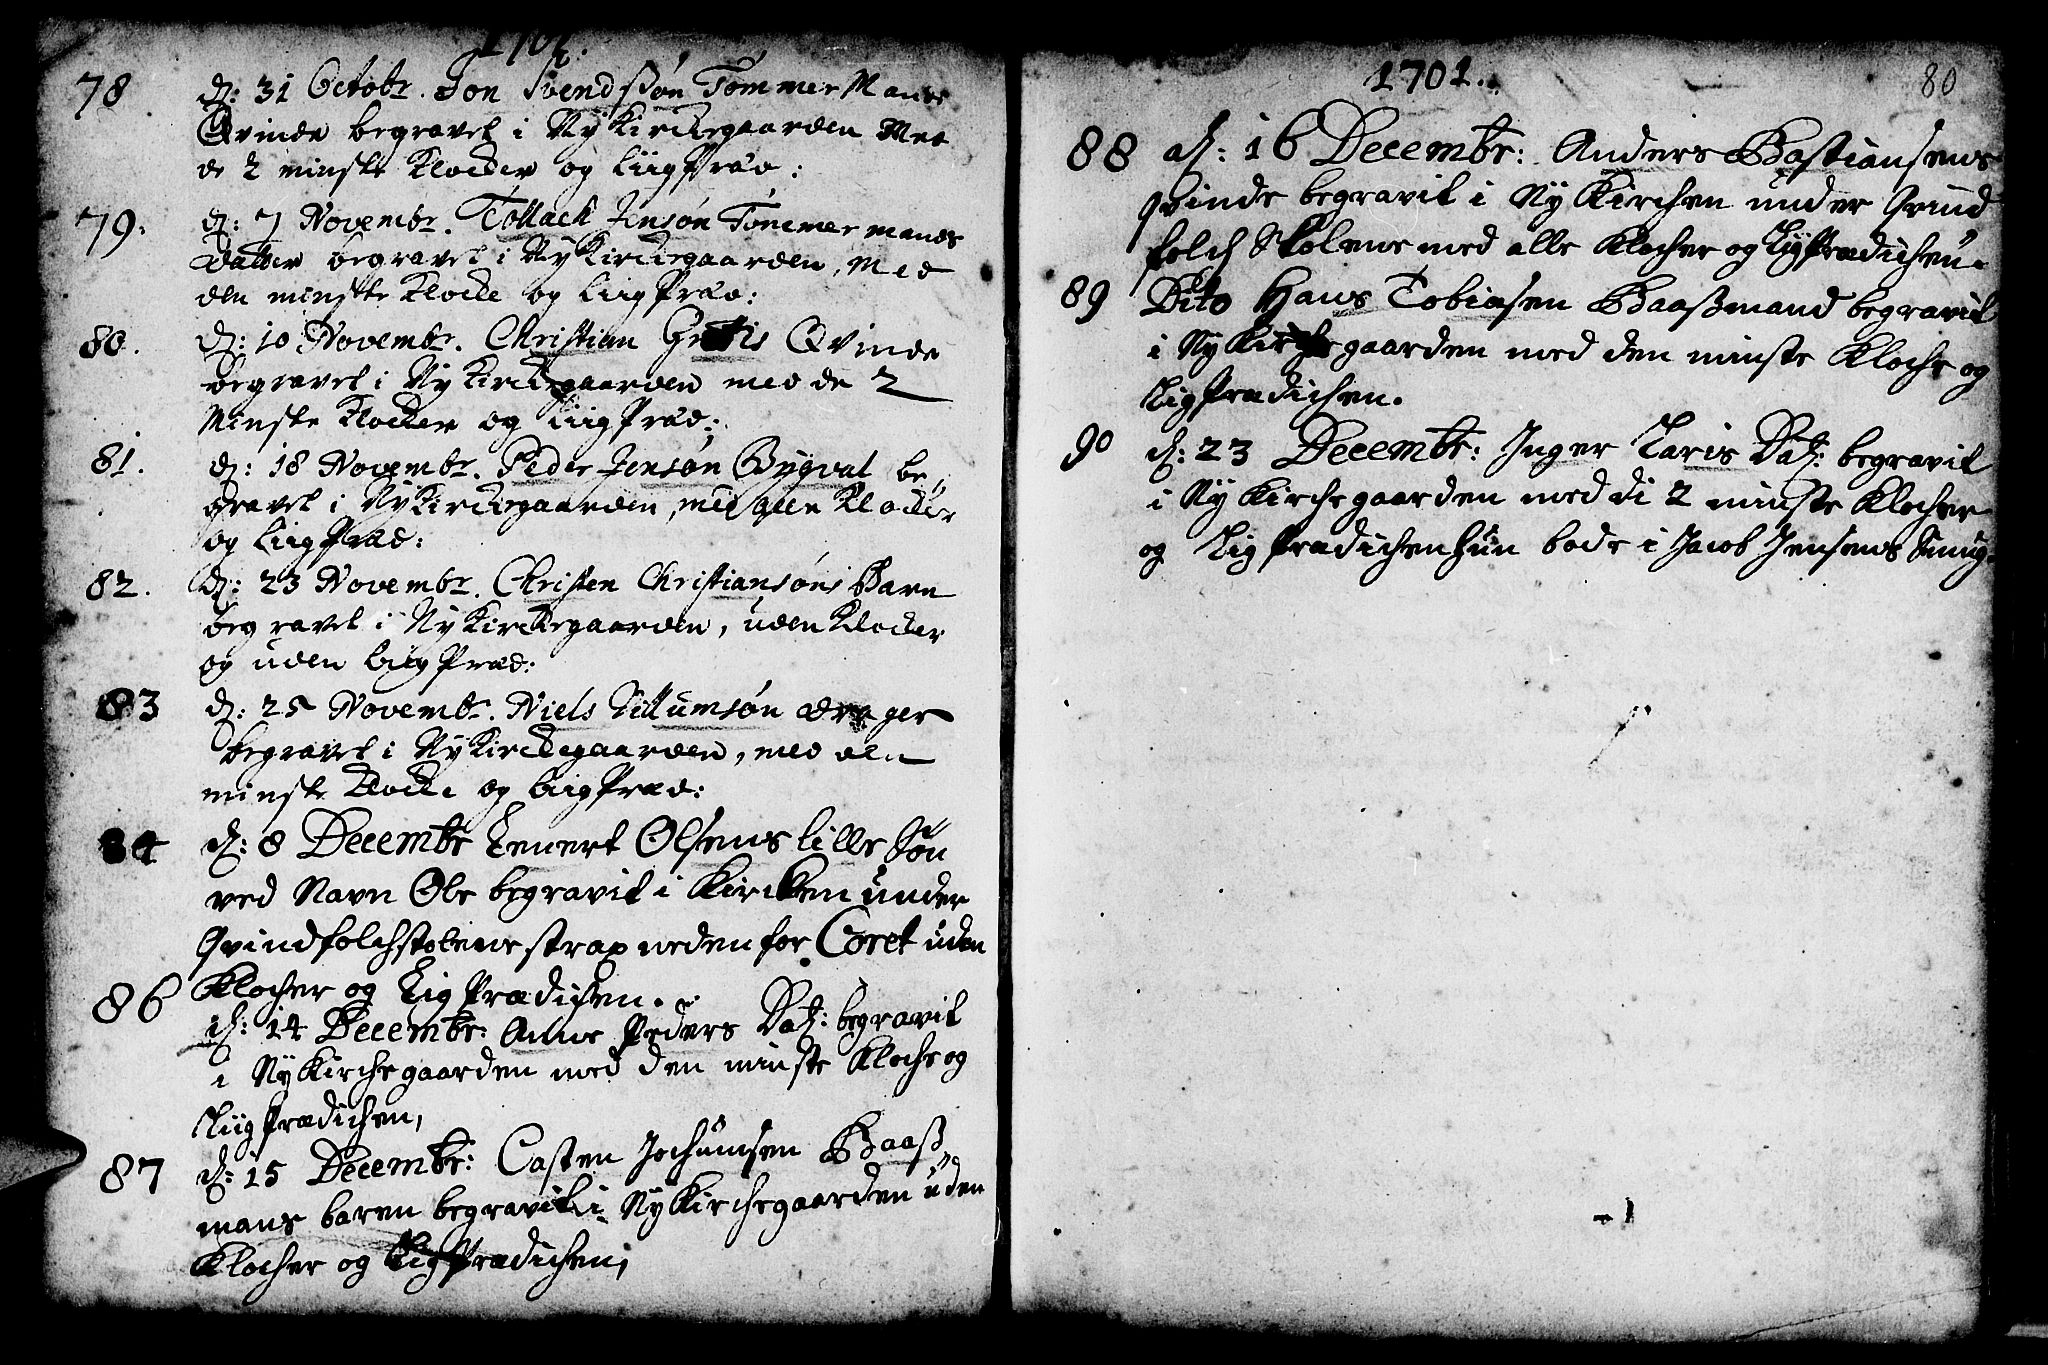 1701.
78. d: 31 Octobr. Jon Svendssøn Tømmer Mands
Qvinde begravet i Ny Kirckegaarden Med
de 2 minste Klocker og Liig Præd:
79. d: 7 Novembr. Tollack Jensøn Tømmermands
Datter begravet i Ny Kirckegaarden, Med
den minste Klocke og Liig Præd:
80. d: 10 Novembr. Christian Qvinde
begravet i Ny Kirckegaarden med de 2
Minste Klocker og Liig Præd:
81. d: 18 Novembr. Peder Jensøn Bygval be,,
gravet i Ny Kirckegaarden, med Klocker
og Liig Præd:
82. d: 23 Novembr. Christen Christiansøns Barn
begravet i Ny Kirckegaarden, uden Klocker
og uden Liig Præd:
83 d: 25 Novembr. Niels Villumsøn
begravet i Ny Kirckegaarden, med den
minste Klocke og Liig Præd:
84 d: 8 Decembr Lenert Olsens lille Søn
ved Navn Ole begravit i Kircken under
Qvindfolchstolene strax neden for Coret uden
Klocher og Lig Prædichen.
86 d: 14 Decembr: Anne Peders Dat: begravit
i Ny Kirche gaarden med den minste Kloche og
Liig Prædichen,
87 d: 15 Decembr: Casten Jochumsen Baaß
mans baren begravit i Ny Kirchegaarden uden
Klocher og Lig Prædichen,
1701.
80
88 d: 16 Decembr: Anders Bastiansens
qvinde begravit i Ny Kirchen under qvind
folch Stolene med alle Klocher og Lig Prædichen.
89 Dito Hans Tobiasen Baaßmand begravit
i Ny Kirche gaarden med den minste Kloche og
Lig Prædichen.
90 d: 23 Decembr: Inger Laris Dat: begravit
i Ny Kirche gaarden med di 2 minste Klocher
og Lig Prædichen hun bode i Jacob Jensens Smug.